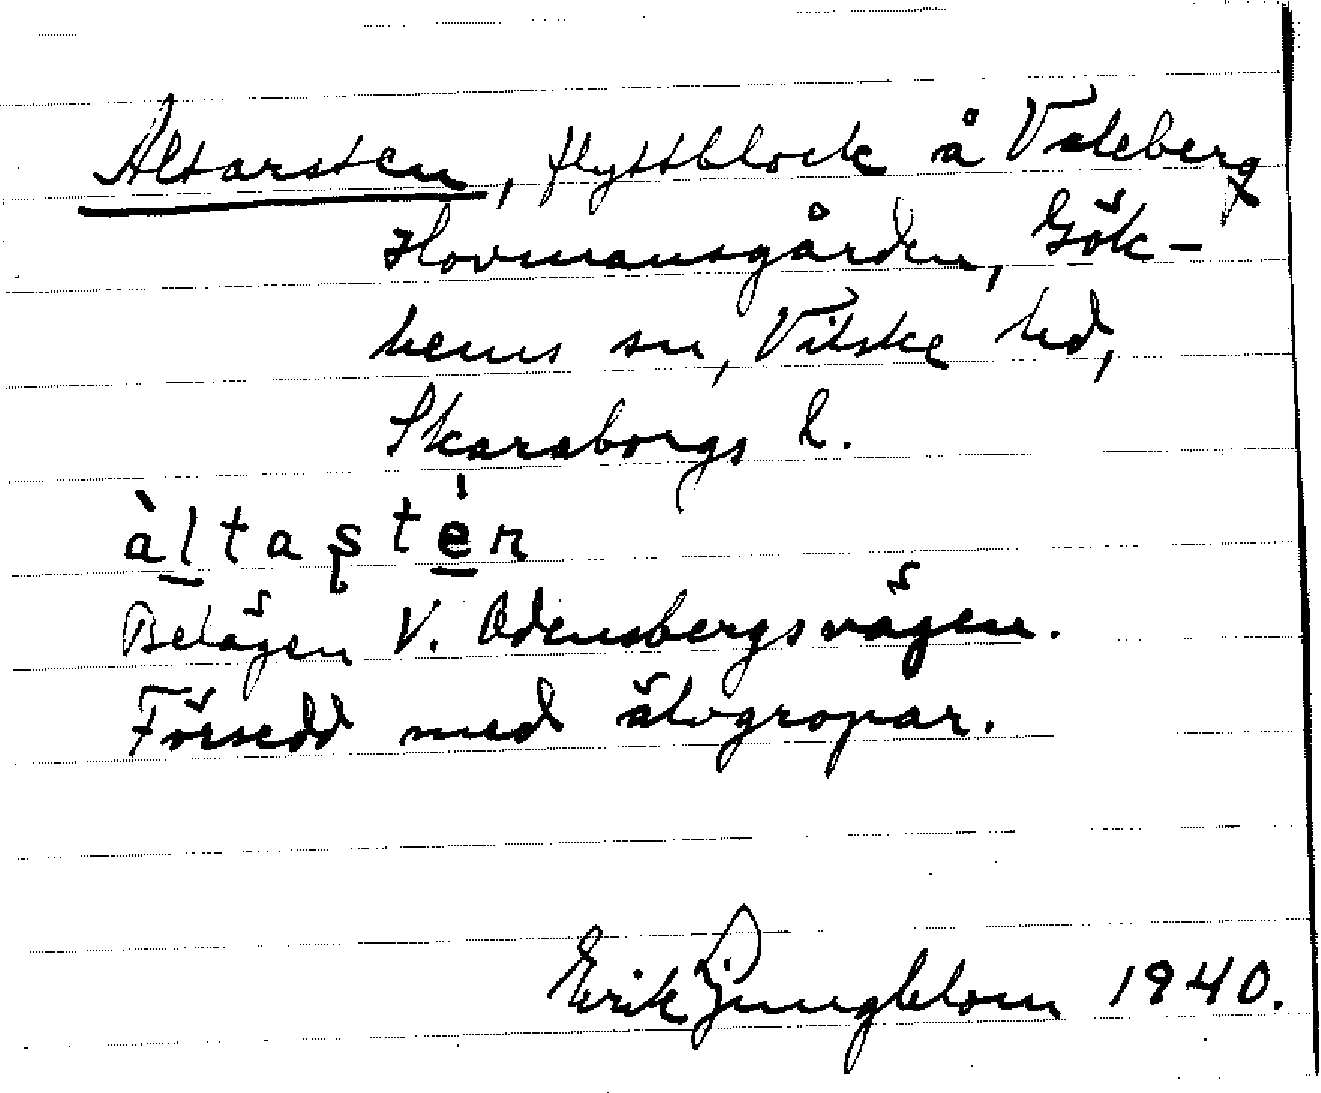 Altarsten, flyttblock å Valeberg
Hovmansgården, Gök-
hems sn, Vilske hd,
Skaraborgs l.
àl̲taʂte̲̍n
Belägen V. Odensbergsvägen.
Försedd med älvgropar.
Erik Ljungblom 1940.